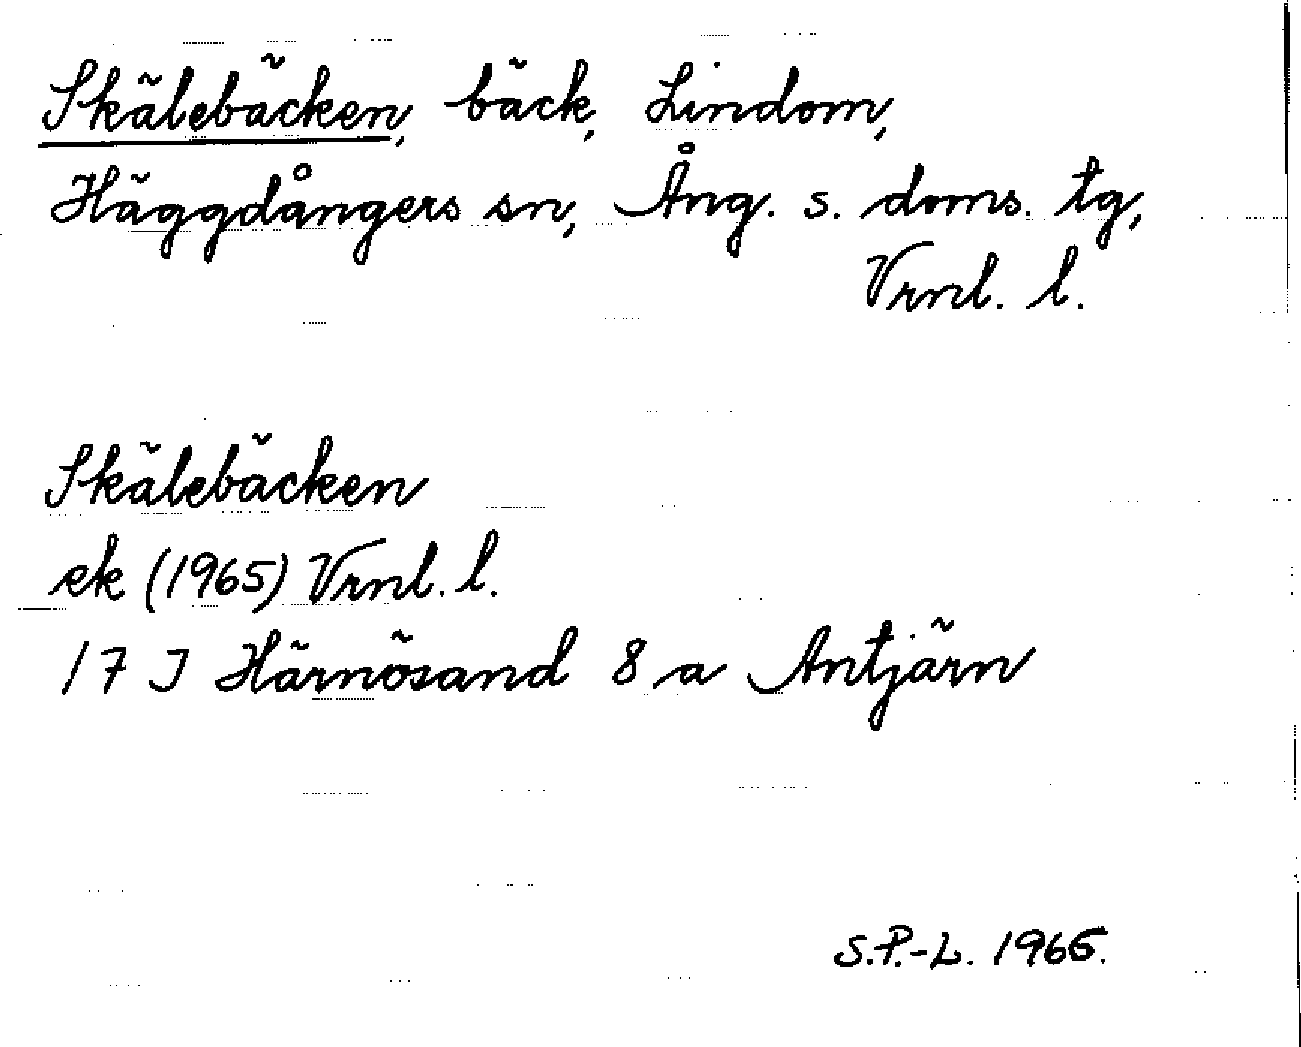 Skälebäcken, bäck, Lindom,
Häggdångers sn, Ång. s. doms. tg,
Vrnl. l.
Skälebäcken
ek (1965) Vrnl. l.
17 J Härnösand 8 a Antjärn
S.P.-L. 1966.